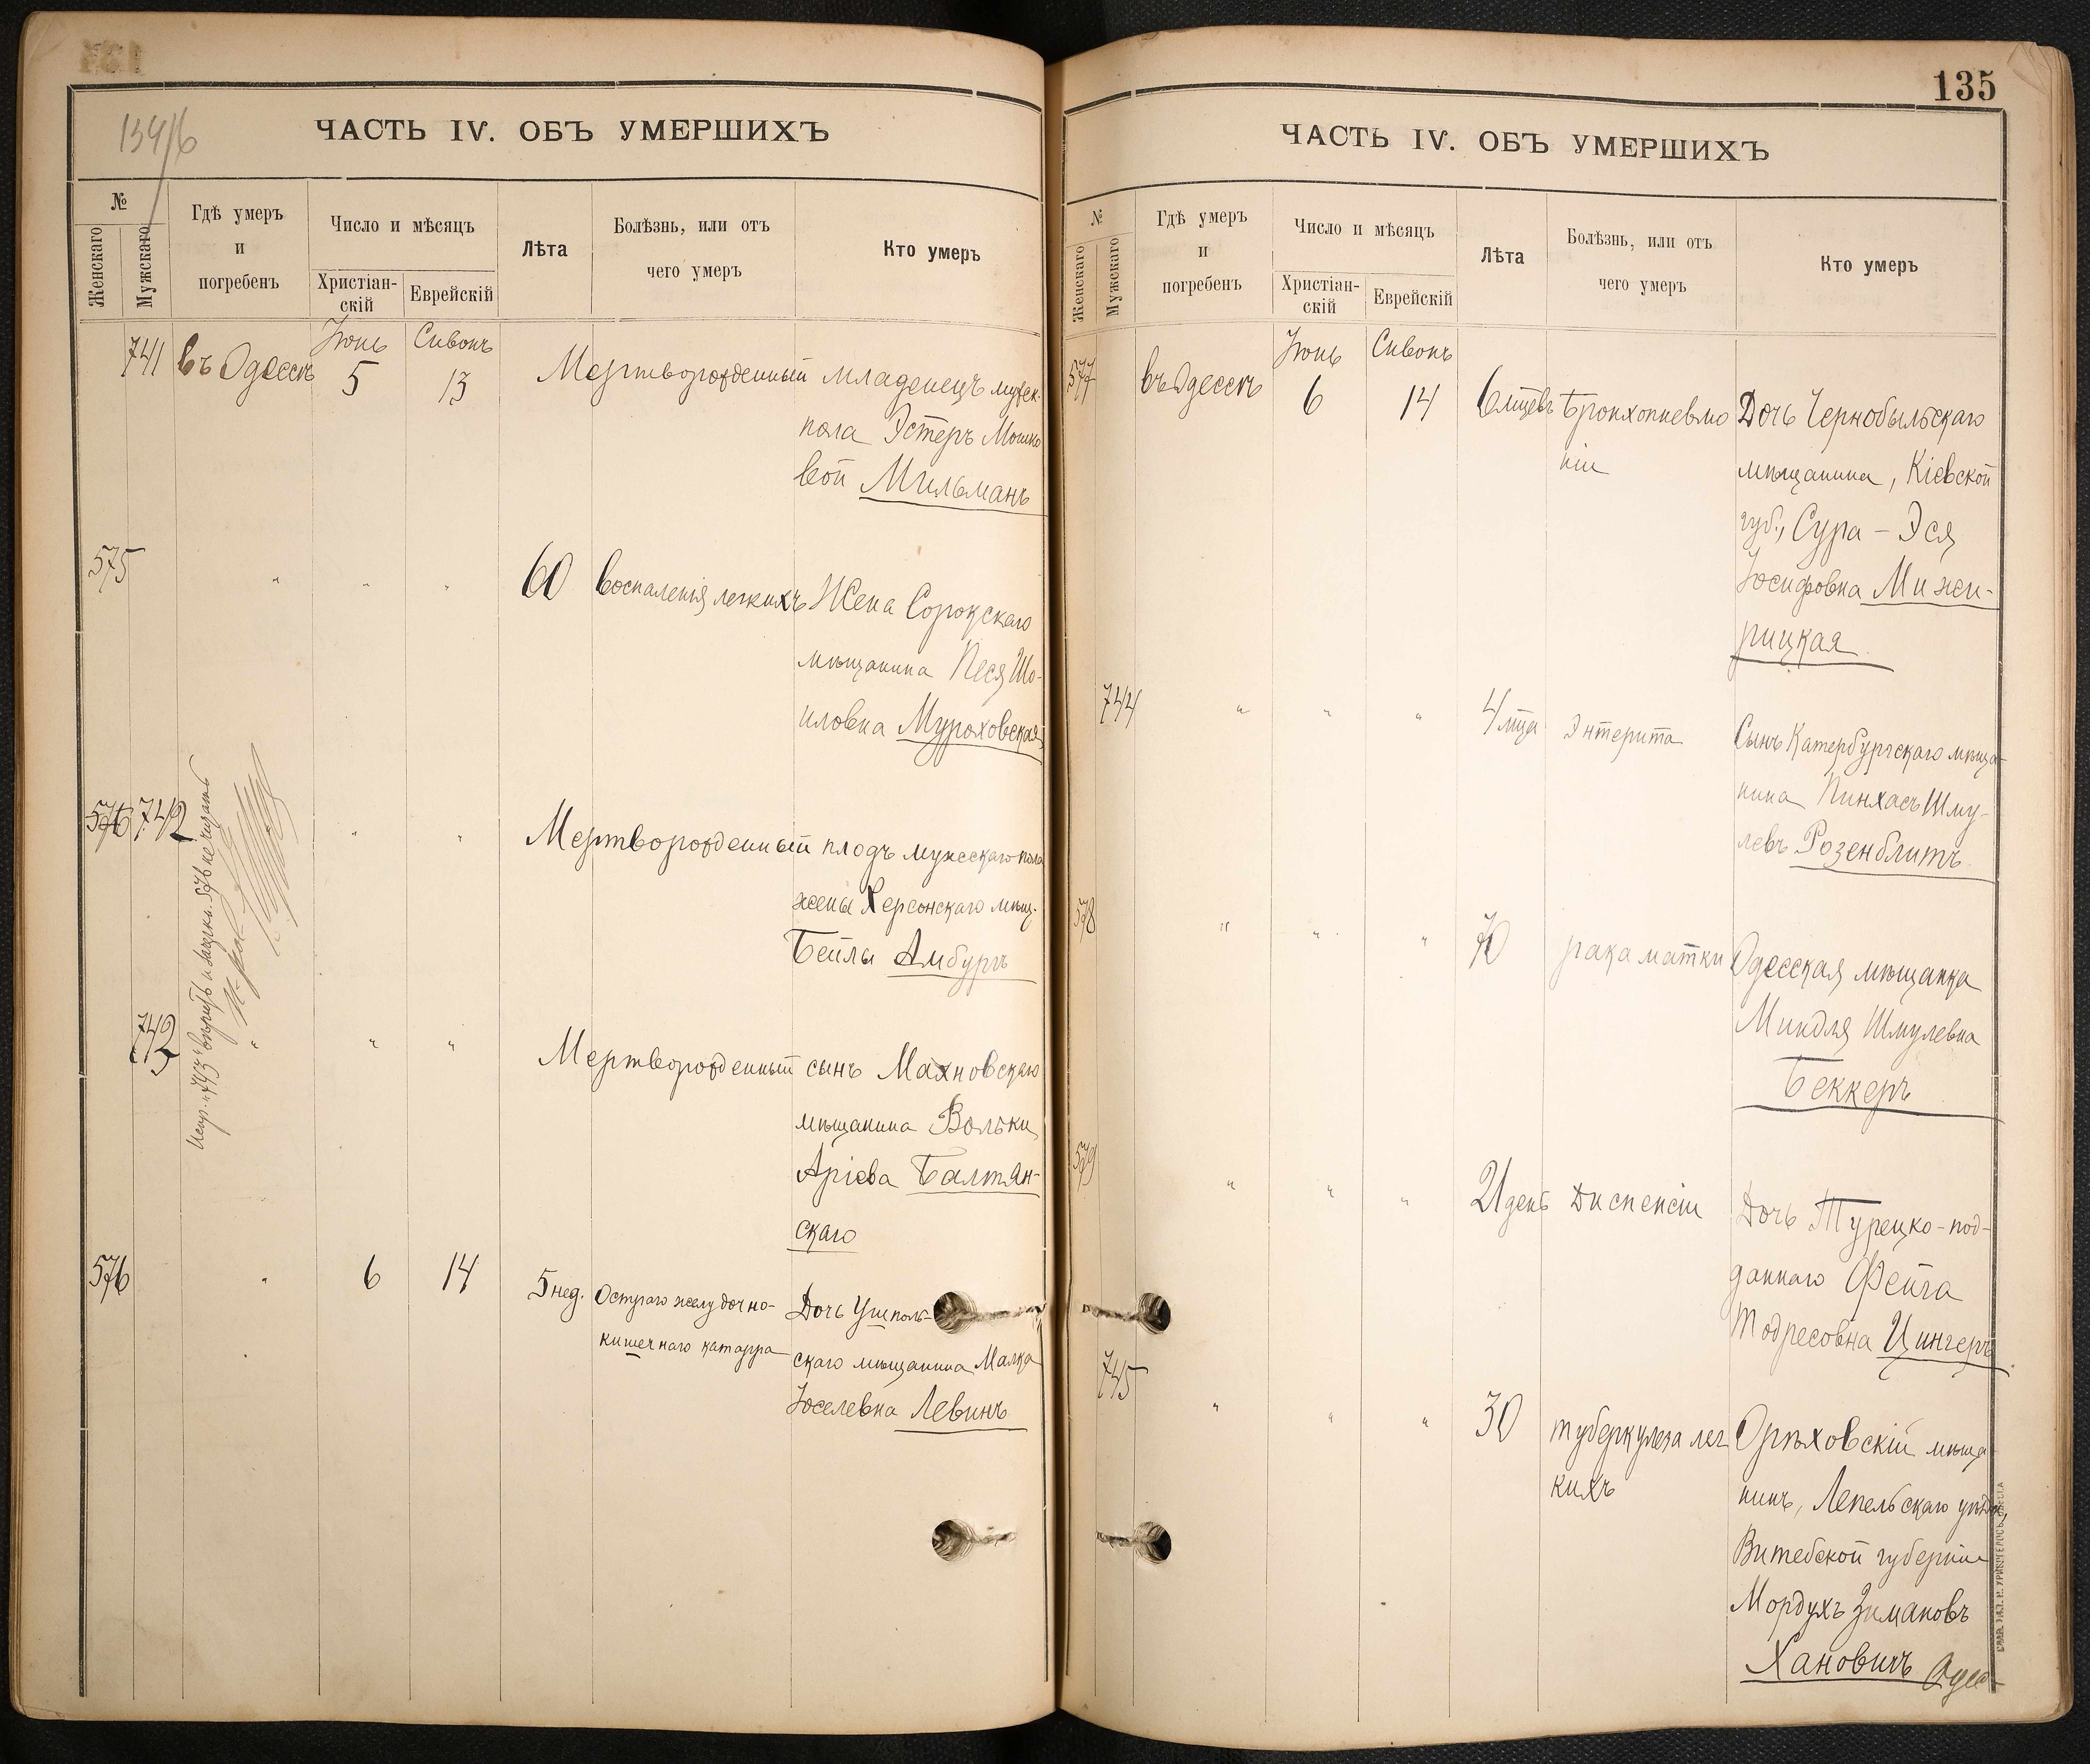 134/6
ЧАСТЬ IV. ОБЪ УМЕРШИХЪ
№
Женскаго
Мужскаго
Гдѣ умеръ
и
погребенъ
Число и мѣсяцъ
Христіан-
скій
Еврейскій
Лѣта
Болѣзнь, или отъ
чего умеръ
Кто умеръ
Іюнь Сивонъ
741 въ Одессѣ 5 13 Мертворожденный младенецъ мужск.
пола Эстеръ Мошко
вой Мильманъ
575 " " " 60 воспаленія легкихъ Жена Сорокскаго
мѣщанина Песя Шо-
иловна Мураховская
576 742 " " Мертворожденный плодъ мужескаго пола
жены Херсонскаго мѣщ.
Бейлы Амбургъ
743 " " " Мертворожденный сынъ Махновскаго
мѣщанина Вольки
Аріева Балтян-
скаго
Испр. "743" вѣрить и зачеркн. 576 не читать
576 " 6 14 5 нед. Остраго желудочно- Дочь Ушполь-
кишечнаго катарра скаго мѣщанина Малка
Іоселевна Левинъ
135
ЧАСТЬ IV. ОБЪ УМЕРШИХЪ
№
Женскаго
Мужскаго
Гдѣ умеръ
и
погребенъ
Число и мѣсяцъ
Христіан-
скій
Еврейскій
Лѣта
Болѣзнь, или отъ
чего умеръ
Кто умеръ
Іюнь Сивонъ
577 въ Одессѣ 6 14 6 мцевъ Бронхопневмо Дочь Чернобыльскаго
ніи мѣщанина, Кіевской
губ., Сура - Эся
Іосифовна Мижи-
рицкая
744 " " " 4 мца Энтерита Сынъ Катербургскаго мѣща-
нина Пинхасъ Шму-
левъ Розенблитъ
578 " " " 70 рака матки Одесская мѣщанка
Миндля Шмулевна
Беккеръ
579 " " " 21 день Диспепсіи Дочь Турецко-под-
даннаго Фейга
Тодресовна Цингеръ
745 " " " 30 туберкулеза лег Орѣховскій мѣща-
кихъ нинъ, Лепельскаго уѣзда,
Витебской губерніи
Мордухъ Зимановъ
Хановичъ Одес-